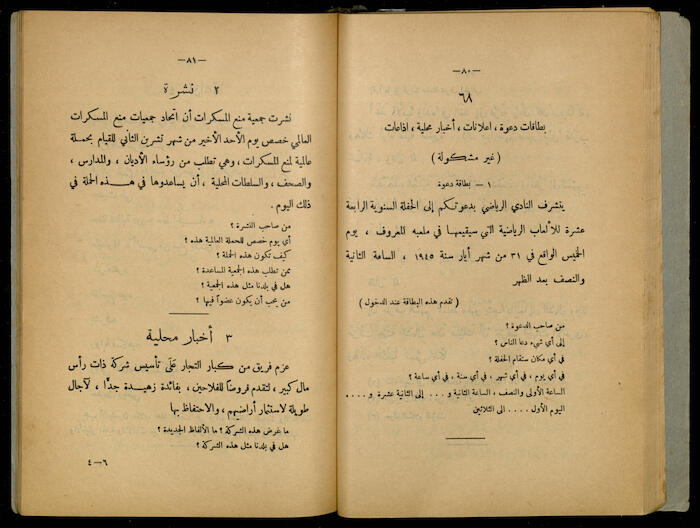 —٨٠—
٦٨
بطاقات دعوة ، اعلانات ، أخبار محلية ، اذاعات
( غير مشكولة )
١ – بطاقة دعوة
يتشرف النادي الرياضي بدعوتكم إلى الحفلة السنوية الرابعة
عشرة للألعاب الرياضية التي سيقيمها في ملعبه المعروف ، يوم
الخميس الواقع في ٣١ من شهر أيار سنة ١٩٤٥ ، الساعة الثانية
والنصف بعد الظهر
( تقدم هذه البطاقة عند الدخول )
من صاحب الدعوة ؟
إلى أي شيء دعا الناس ؟
في أي مكان ستقام الحفلة ؟
في أي يوم ، في أي شهر ، في أي سنة ، في أي ساعة ؟
الساعة الأولى والنصف ، الساعة الثانية و ... إلى الثانية عشرة و ....
اليوم الأول .... الى الثلاثين
—٨١—
٢ نشرة
نشرت جمعية منع المسكرات أن اتحاد جمعيات منع المسكرات
العالمي خصص يوم الأحد الأخير من شهر تشرين الثاني للقيام بحملة
عالمية لمنع المسكرات ، وهي تطلب من رؤساء الأديان ، والمدارس ،
والصحف ، والسلطات المحلية ، أن يساعدوها في هذه الحملة في
ذلك اليوم .
من صاحب النشرة ؟
أي يوم خصص للحملة العالمية هذه ؟
كيف تكون هذه الحملة ؟
ممن تطلب هذه الجمعية المساعدة ؟
هل في بلدنا مثل هذه الجمعية ؟
من يجب أن يكون عضواً فيها ؟
٣ أخبار محلية
عزم فريق من كبار التجار على تأسيس شركة ذات رأس
مال كبير ، لتقدم قروضاً للفلاحين ، بفائدة زهيدة جداً ، لآجال
طويلة لاستثمار أراضيهم ، والاحتفاظ بها
ما غرض هذه الشركة ؟ ما الألفاظ الجديدة ؟
هل في بلدنا مثل هذه الشركة ؟
٤—٦